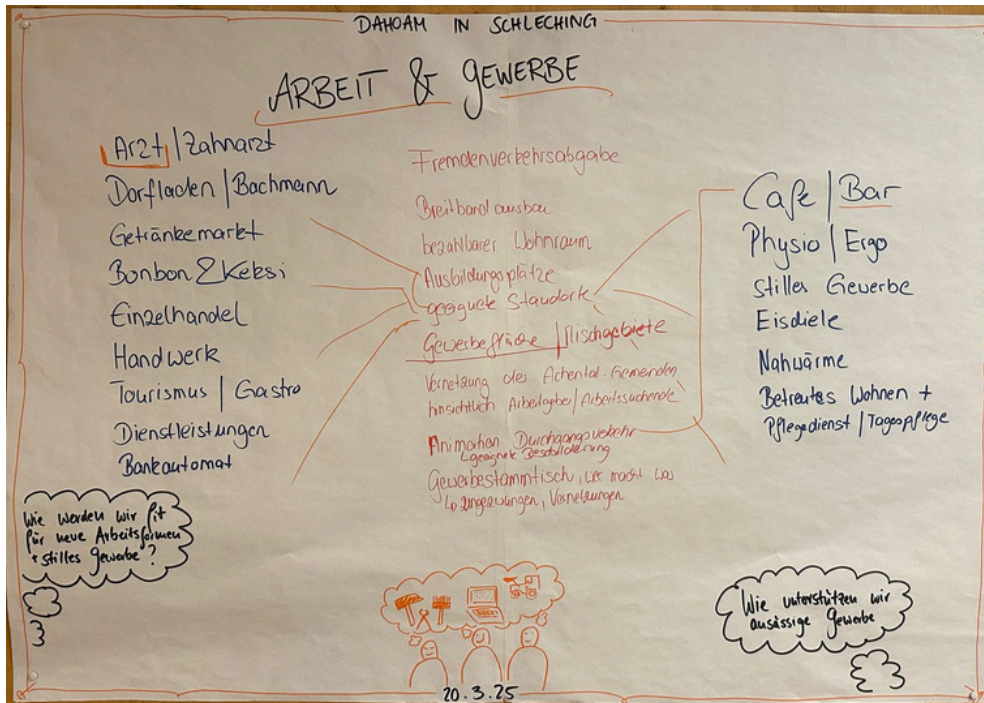 DAHOAM IN SCHLECHING
ARBEIT & GEWERBE
Arzt | Zahnarzt
Dorfladen | Bachmann
Getränkemarkt
Bonbon & Keksi
Einzelhandel
Handwerk
Tourismus | Gastro
Dienstleistungen
Bankautomat
Fremdenverkehrsabgabe
Breitbandausbau
bezahlbarer Wohnraum
Ausbildungsplätze
geeignete Standorte
Gewerbefläche | Mischgebiete
Vernetzung der Achental-Gemeinden
hinsichtlich Arbeitgeber/Arbeitssuchende
Animation Durchgangsverkehr
geeignete Beschilderung
Gewerbestammtisch, wer macht was
ungezwungen, Vernetzungen
Cafe | Bar
Physio | Ergo
Stilles Gewerbe
Eisdiele
Nahwärme
Betreutes Wohnen +
Pflegedienst / Tagespflege
Wie werden wir fit
für neue Arbeitsformen
+ stilles Gewerbe?
Wie unterstützen wir
ansässige Gewerbe
20.3.25